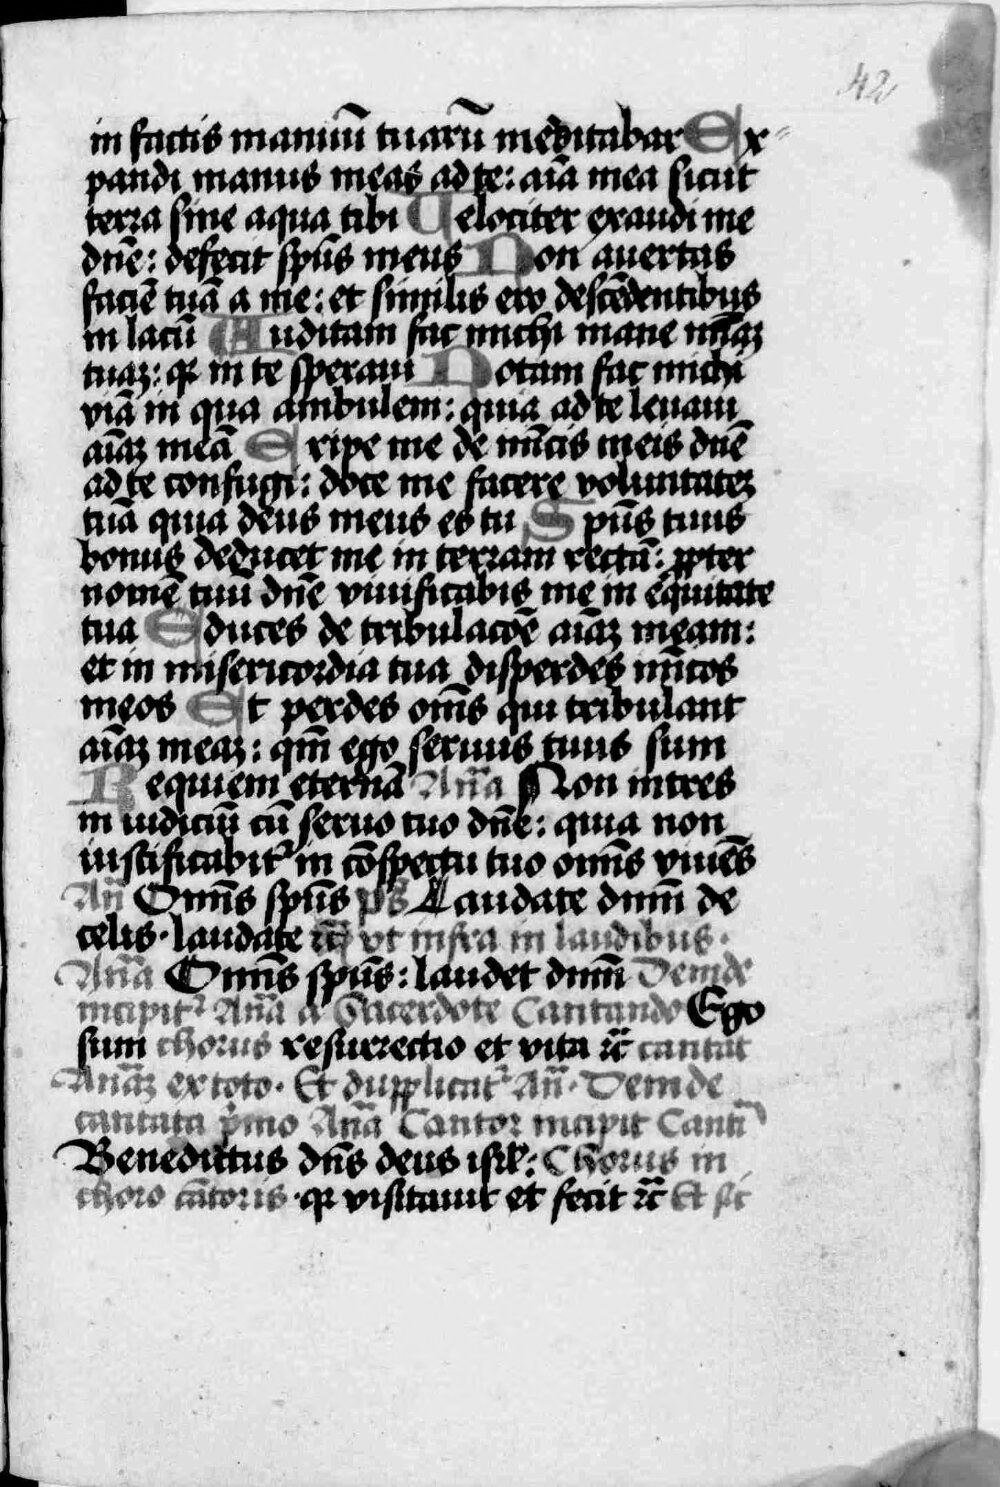 42
in factis manuū tuarū meditabar Ex⸗
pandi manus meas ad te: aīa mea sicut
terra sine aqua tibi Velociter exaudi me
dn̄e: defecit sp̄us meus Non auertas
faciē tuā a me: et similis ero descēdentibus
in lacū Auditam fac michi mane mīaꝫ
tuaꝫ: qꝛ in te speraui Notam fac michi
viā in qua ambulem: quia ad te leuaui
aīaꝫ meā Eripe me de inīcis meis dn̄e
ad te confugi: doce me facere voluntateꝫ
tuā quia deus meus es tu Sp̄us tuus
bonus deducet me in terram rectā: ꝓpter
nomē tuū dn̄e viuificabis me in equitate
tua Educes de tribulacōe aīaꝫ meam:
et in misericordia tua disperdes inīcos
meos Et perdes om̄s qui tribulant
aīaꝫ meaꝫ: qm̄ ego seruus tuus sum
Requiem eternā An̄a Non intres
in iudiciū cū seruo tuo dn̄e: quia non
iustificabitᷣ in cōspectu tuo omīs viuēs
An̄ Omīs sp̄us ps̄ Laudate dnm̄ de
celis · laudate ꝛc̄ vt infra in laudibus ·
An̄a Omīs sp̄us: laudet dnm̄ Deinde
incipitᷣ An̄a a Sacerdote Cantando Ego
sum chorus resurrectio et vita ꝛc̄ cantat
An̄aꝫ ex toto · Et dupplicatᷣ An̄ · Deinde
cantata pͥmo An̄a Cantor incipit Canti
Benedictus dn̄s deus isrl̄: Chorus in
choro cātoris · qꝛ visitauit et fecit ꝛc̄ Et sic